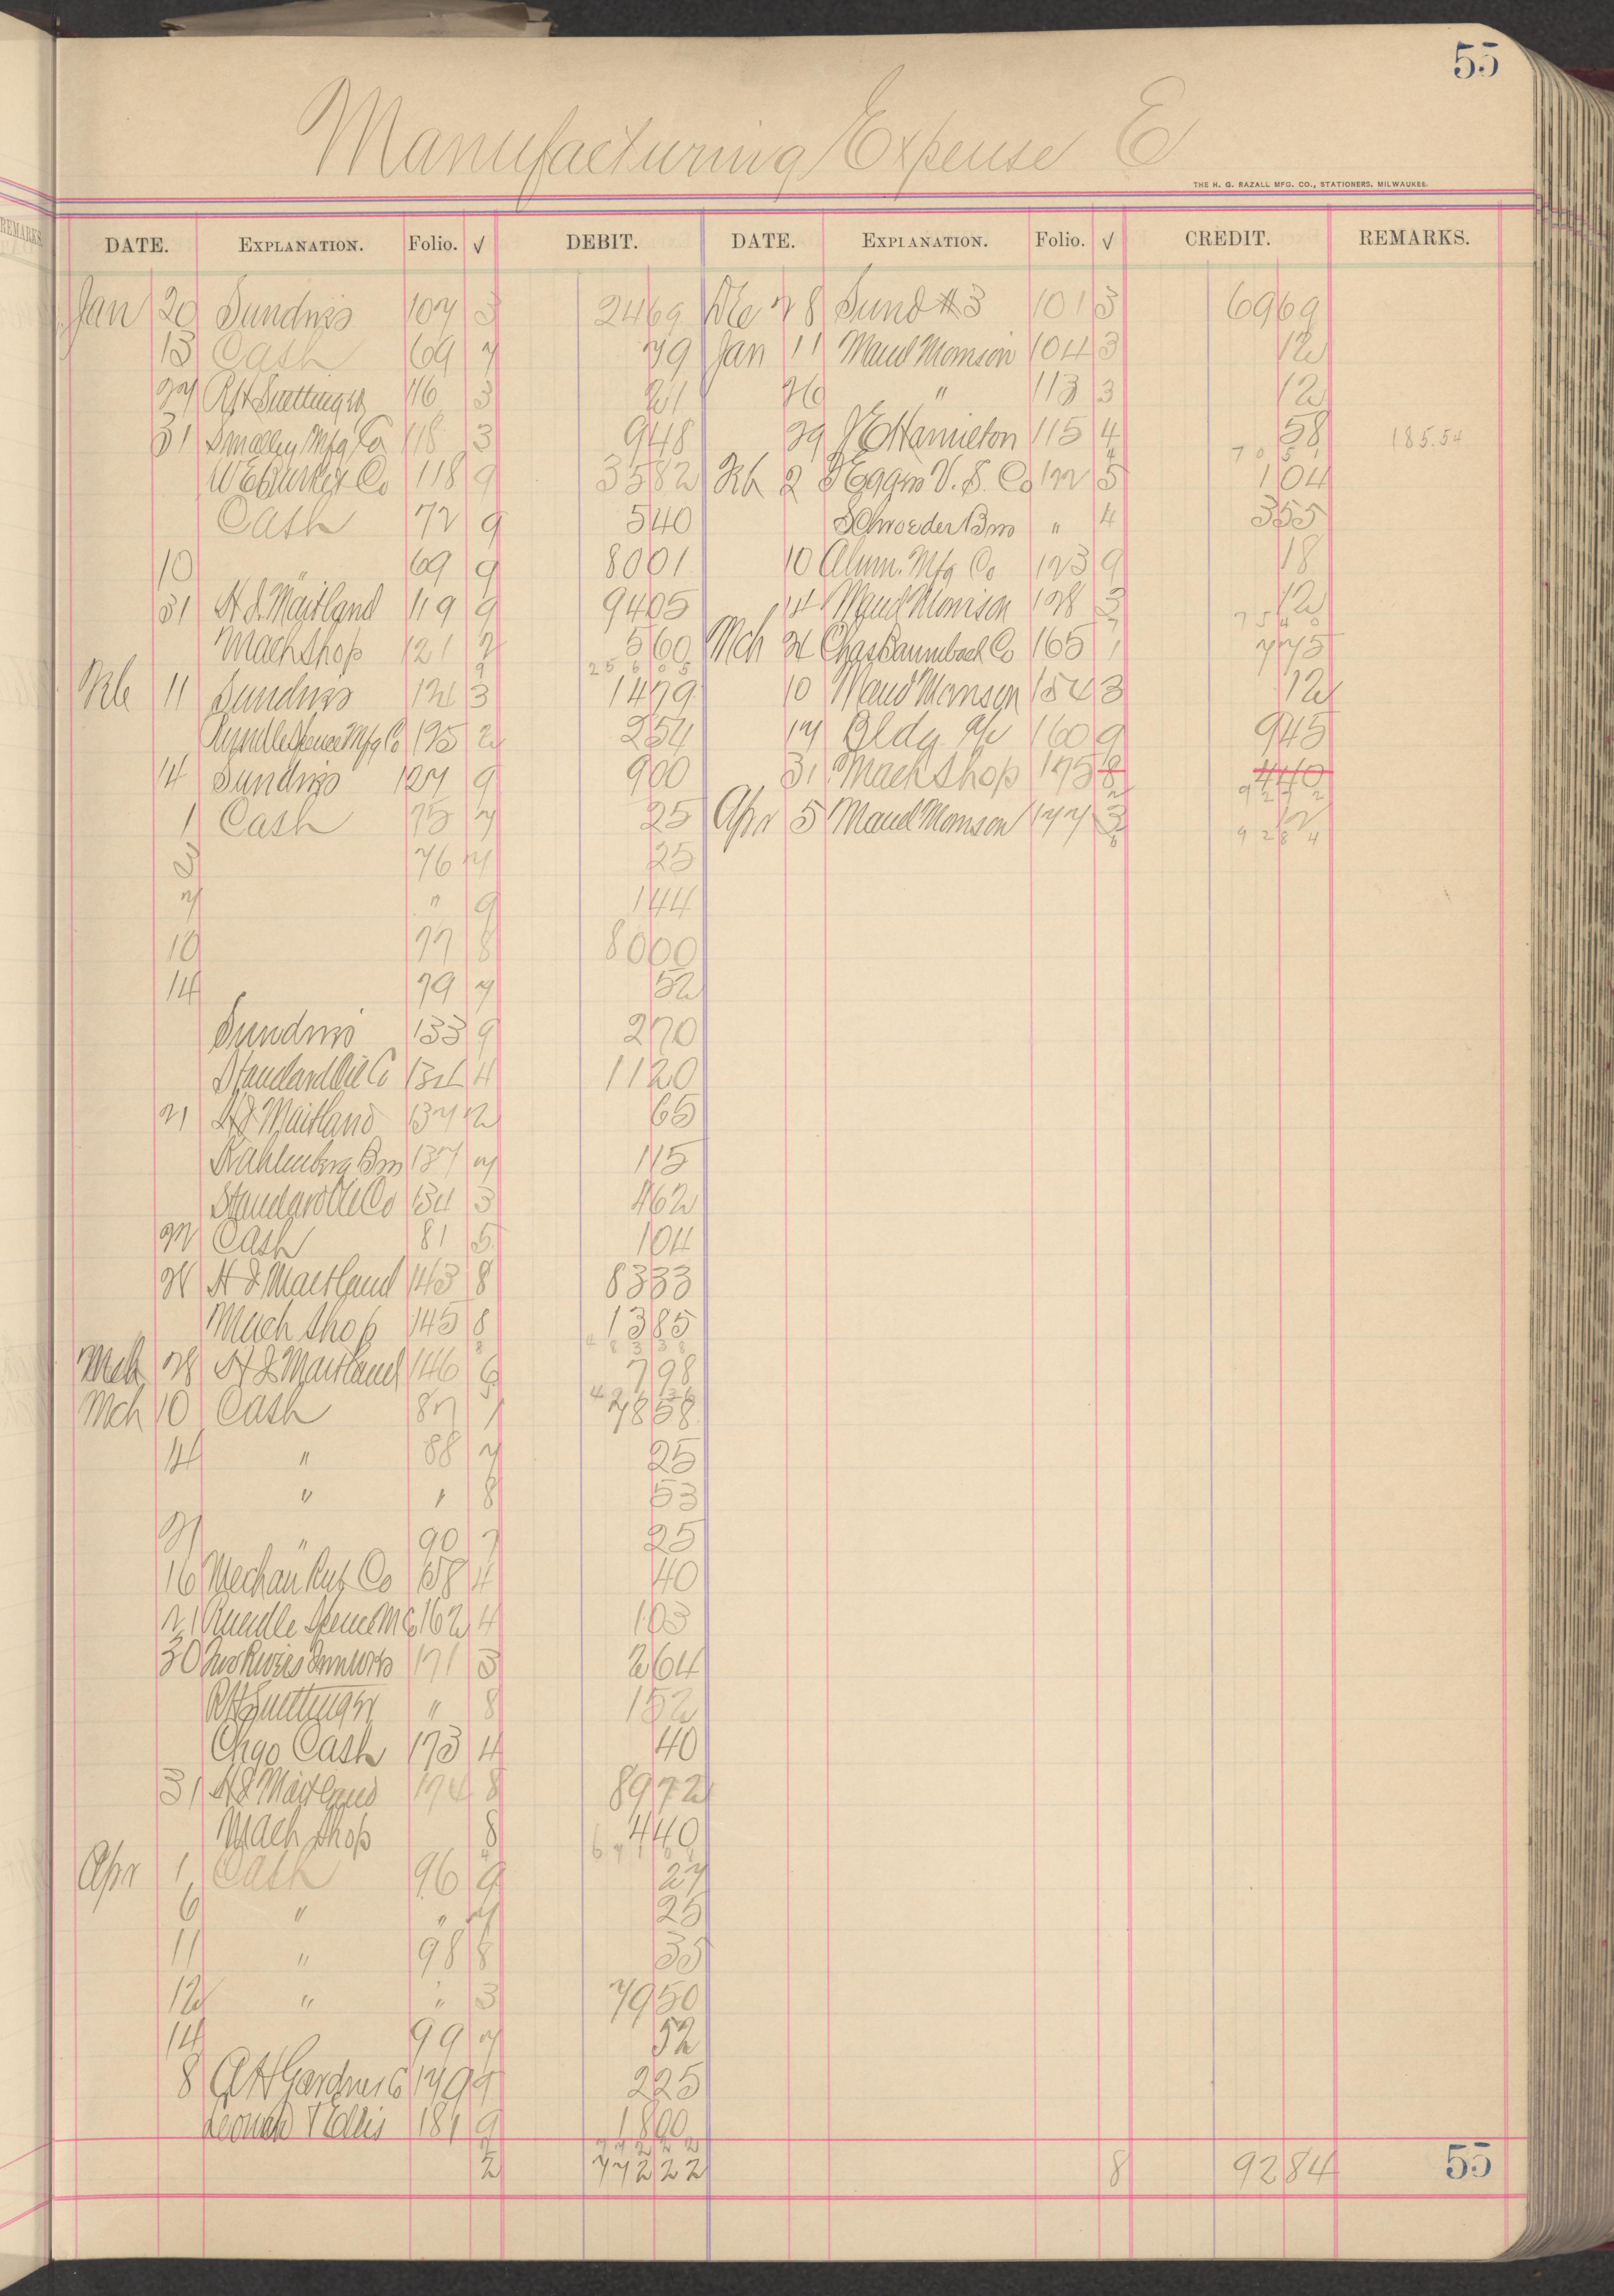 55
Manufacturing Expense E
THE H. G. RAZALL MFG. CO., STATIONERS, MILWAUKEE.
REMARKS
DATE. EXPLANATION. Folio. √ DEBIT. DATE. EXPLANATION. Folio. √ CREDIT. REMARKS.
Jan 20 Sundries 107 3 2469 Dec 28 Sund #3 101 3 6969
13 Cash 69 7 79 Jan 11 Maud Morrison 104 3 12
27 R H Suettinger 116 3 21 26 " 113 3 12
31 Smalley Mfg Co 118 3 948 29 J E Hamilton 115 4 58 185.54
7051
118 9 3582 Feb 2 Eggers V. S. Co 122 5 104
Cash 72 9 540 Schroeder Bros " 4 355
10 " 69 9 8001 10 Alum. Mfg Co 123 9 18
31 H J. Maitland 119 9 9405 14 Maud Morrison 128 3 12
7540
Mach Shop 121 2 560 Mch 4 Chas Baumbach Co 165 1 775
25605
Feb 11 Sundries 121 3 1479 10 Maud Morrison 154 3 12
Rundle Spence Mfg Co 125 2 254 17 Bldg a/c 160 9 945
14 Sundries 127 9 900 31 Mach Shop 175 8 440
9272
1 Cash 75 7 25 Apr 5 Maud Morrison 177 3 12
9284
3 76 7 25
7 " 9 144
10 77 8 8000
14 79 7 52
Sundries 133 9 270
Standard Oil Co 134 4 1120
21 H J Maitland 137 2 65
Kahlenberg Bros 137 7 115
Standard Oil Co 134 3 462
22 Cash 81 5 104
28 H J Maitland 143 8 8333
Mach Shop 145 8 1385
48338
Mch 28 H J Maitland 146 6 798
Mch 10 Cash 87 1 7858
14 " 88 7 25
" " 8 53
21 " 90 7 25
16 Mechan Rub Co 158 4 40
21 Rundle Spence M Co 162 4 103
30 Two Rivers Iron Wks 171 3 264
R H Suettinger " 8 152
Chgo Cash 173 4 40
31 H J Maitland 174 8 8972
Mach Shop 8 440
Apr 1 Cash 96 9 27
6 " " 7 25
11 " 98 8 35
12 " " 3 7950
14 99 7 52
8 Gardner Co 179 9 225
Leonard & Ellis 181 9 1800
77222
2 77222 8 9284 55